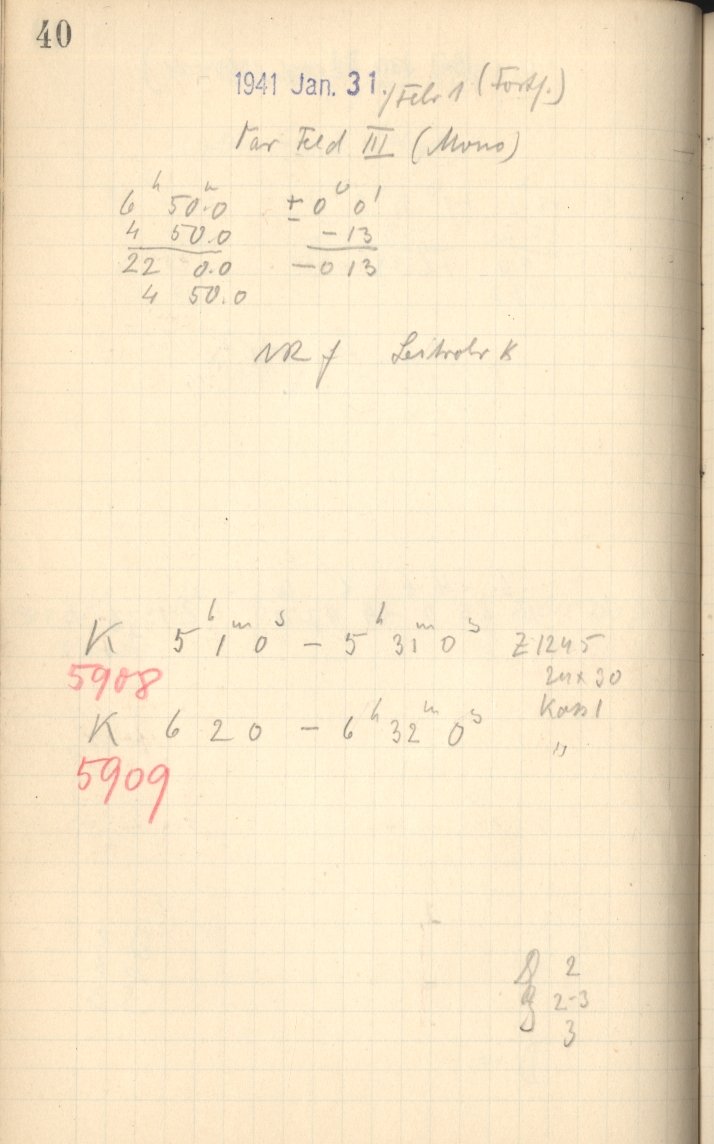 40
1941 Jan. 31./Febr 1 (Forts.)
Var Feld III (Mono)
6ʰ 50.ᵐ0 ± 0° 0'
4 50.0 - 13
22 0.0 - 0 13
4 50.0
NR f Leitrohr K
K 5ʰ 1ᵐ 0ˢ - 5ʰ 31ᵐ 0ˢ Z1245
5908 24 x 30
Kass 1
K 6 2 0 - 6ʰ 32ᵐ 0ˢ "
5909
2
2-3
3